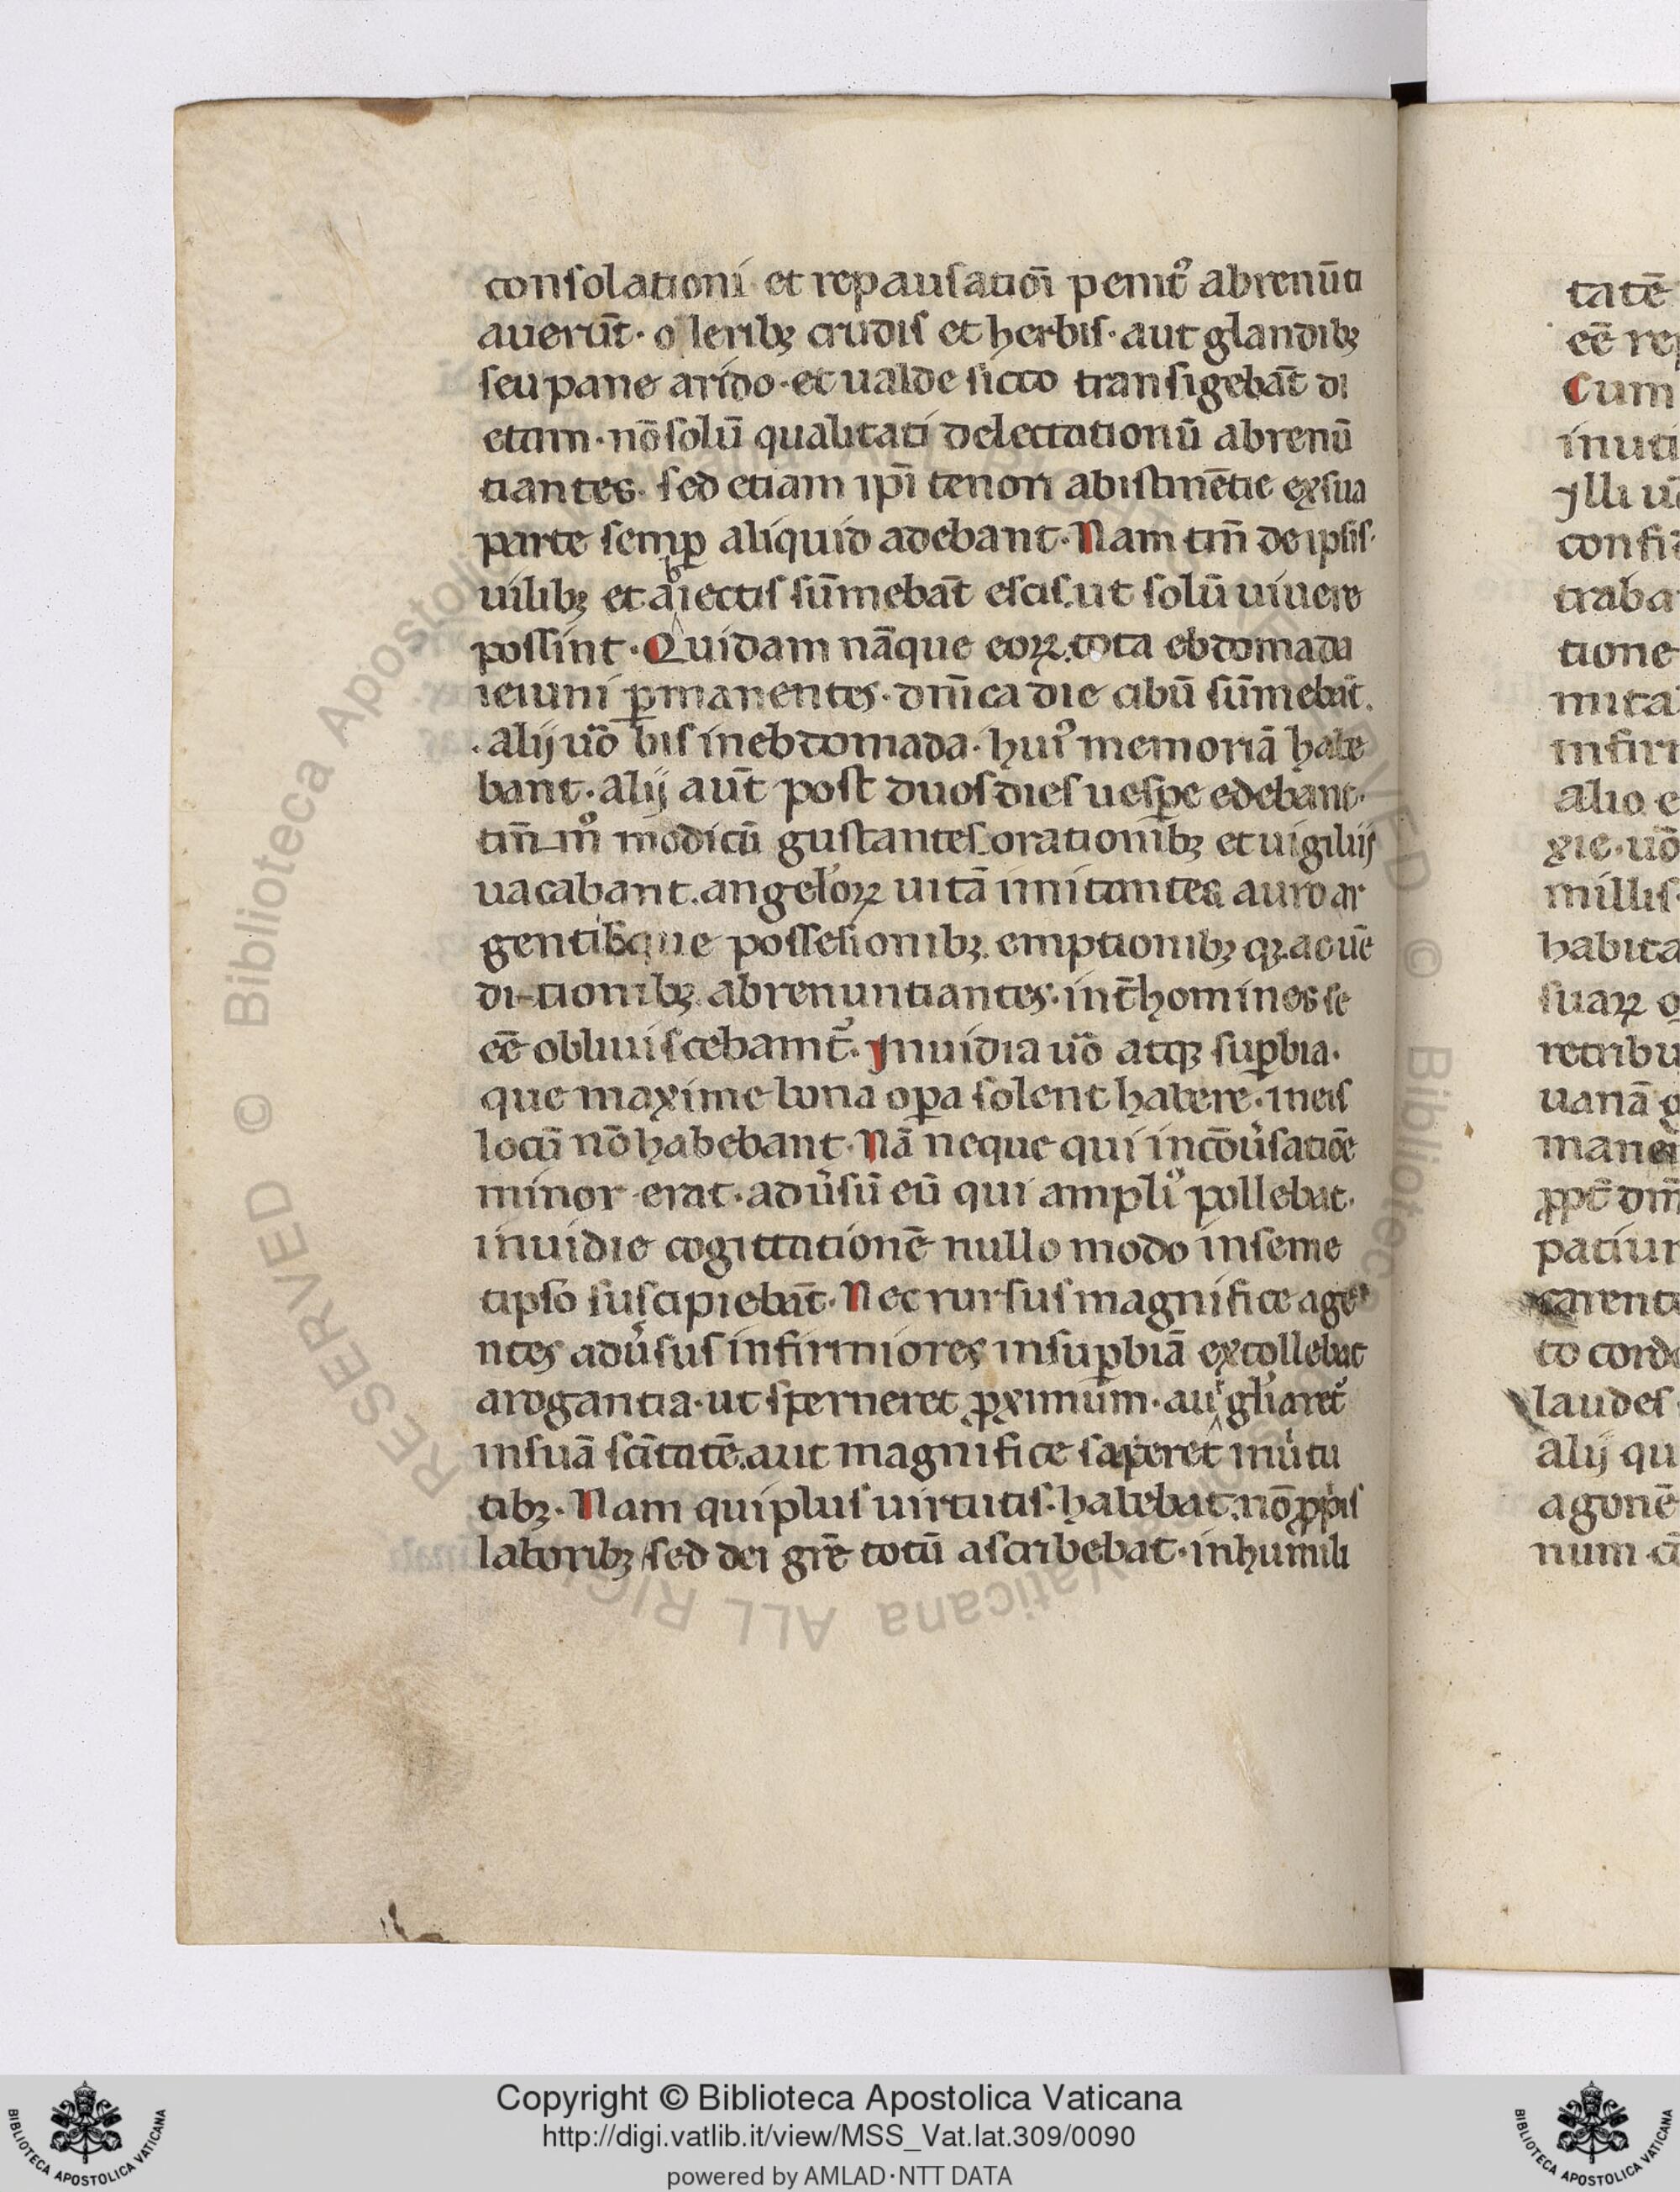 consolationi et repausatiōi penit᷒ abrenūti
auerūt· oleribꝫ crudis et herbis· aut glandibꝫ
seu pane arido· et ualde sicco transigebāt di
etam· nō solū qualitati delectationū abrenū
tiantes· sed etiam ip̄i tenori abistinētie ex sua
parte semꝑ aliquid adebant· Nam tm̄ de ipsis·
uilibꝫ et abiectis sūmebāt escis· ut solū uiuere
possint· Quidam nāque eoꝝ· tota ebdomada
ieiuni ꝑmanentes· dn̄ica die cibū sūmebāt.
· alij uō bis in ebdomada· hui᷒ memoriā habe
bant· alij aūt post duos dies uesꝑe edebant·
tm̄ m̊ modicū gustantes orationibꝫ et uigiliis
uacabant. angeloꝝ uitā imitantes auro ar
gentibque possesionibꝫ. emptionibꝫ qꝫ. ac uē
ditionibꝫ abrenuntiantes· int̄ homines se
eē obliuiscebamt᷑· Inuidia uō atqꝫ suꝑbia·
que maxime bona oꝑa solent habere· in eis
locū nō habebant· Nā neque qui in cōu᷑satiōe
minor erat· adu᷑sū eū qui ampli᷒ pollebat·
inuidie cogittationē nullo modo in seme
tipso suscipiebāt· Nec rursus magnifice age
ntes adu᷑sus infirmiores in suꝑbiā extollebat
arogantia· ut sperneret ꝓximūm· aut gl̄iaret᷑
in suā sc̄itatē. aut magnifice saperet in u᷑tu
tibꝫ· Nam qui plus uirtutis· habebat. nō ꝓpiis
laboribꝫ / sed dei grē totū ascribebat· in humili
tatē
eē rep
Cum
inuti
Illi uō
confi
traba
tione
mita
infir
alio e
xie· uō
millis·
habita
suaꝝ q
retribu
uanā g
manen
patiun
carent
to corde
laudes
alij qu
agonē
num
Copyright © Biblioteca Apostolica Vaticana
http://digi.vatlib.it/view/MSS_Vat.lat.309/0090
powered by AMLAD·NTT DATA
BIBLIOTECA APOSTOLICA VATICANA
BIBLIOTECA APOSTOLICA VATICANA